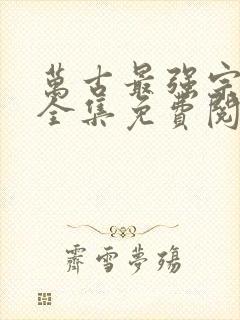 萬古最強宗
全集免費閱
霽雪夢殤